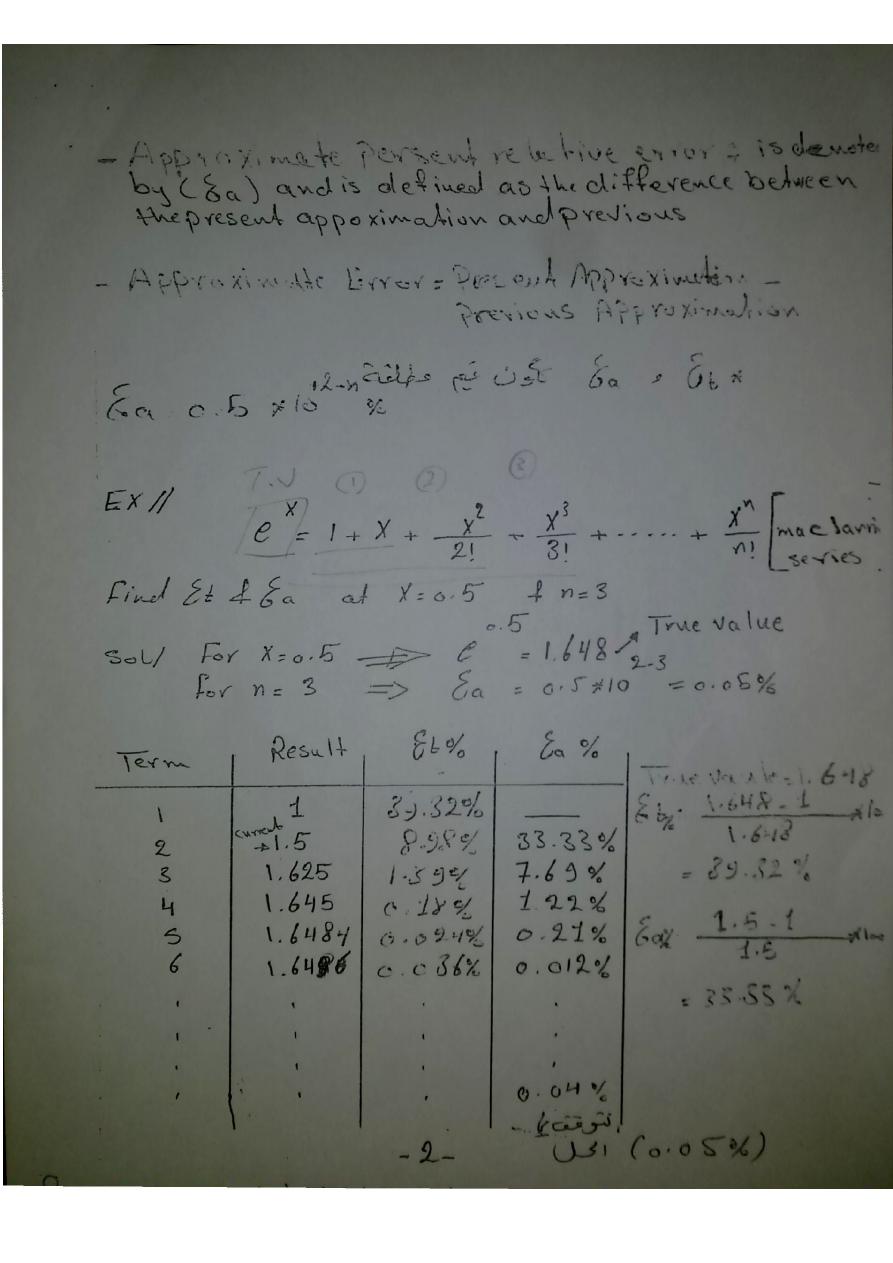 - Approximate Persent relative error : is denote
by (Ԑa) and is defined as the difference between
the present appoximation and previous
- Approximatte Error = Present Approximation -
Previous Approximation
* Ԑt , Ԑa تكون قيم مطلقة
Ԑa 0.5 *10^2-n %
T.V ① ② ③
EX // e^x = 1 + x + x^2/2! - x^3/3! + ...... + x^n/n! [maclarin series
Find Ԑt & Ԑa at X=0.5 & n=3
Sol/ For x=0.5 ⇒ e^0.5 = 1.648 ↗ True value
for n = 3 ⇒ Ԑa = 0.5*10^2-3 = 0.05%
Term | Result | Ԑt% | Ԑa %
1 | 1 | 39.32% | —
2 | current →1.5 | 8.98% | 33.33%
3 | 1.625 | 1.39% | 7.69%
4 | 1.645 | 0.18% | 1.22%
5 | 1.6484 | 0.024% | 0.21%
6 | 1.6486 | 0.036% | 0.012%
. | . | . | .
. | . | . | .
. | . | . | .
. | . | . | 0.04%
True value = 1.648
Ԑt% = 1.648 - 1 / 1.648 *10
= 39.32%
Ԑa% 1.5 - 1 / 1.5 *100
= 33.33%
نتوقف
الحل (0.05%)
-2-